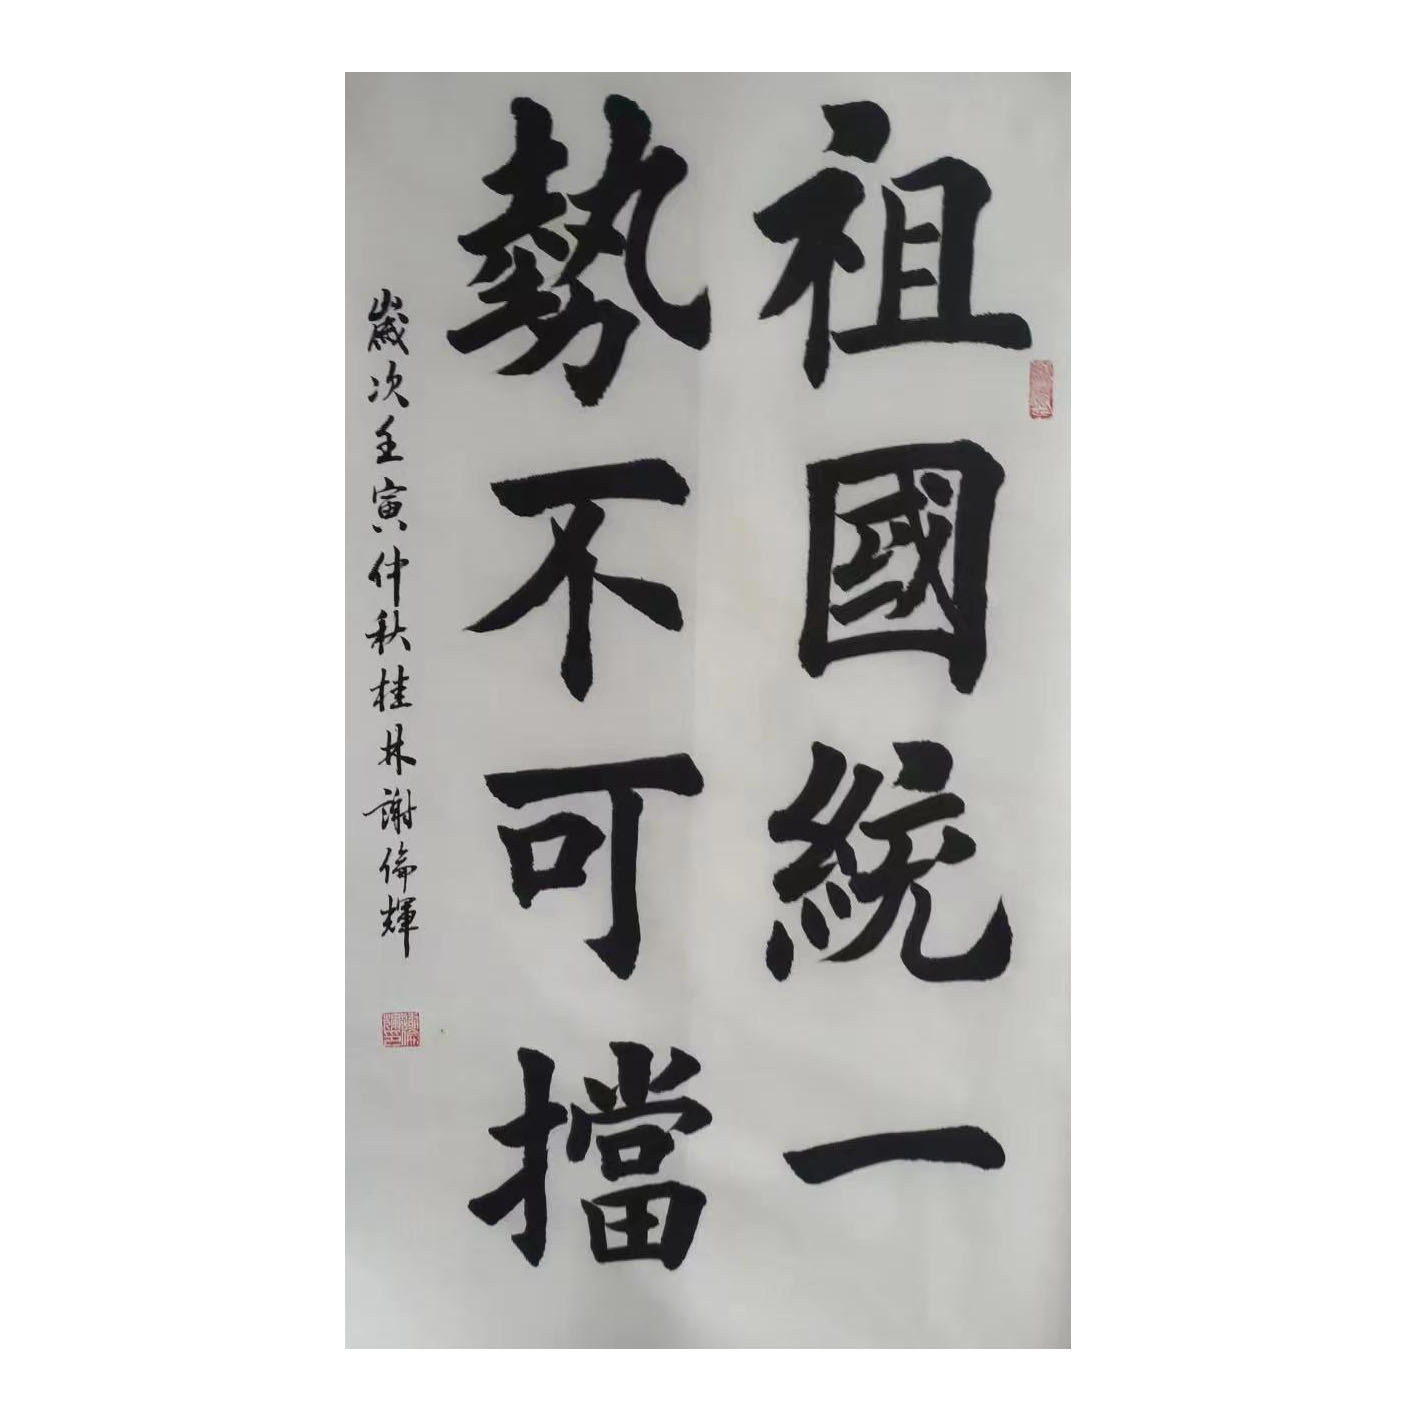 祖國統一
勢不可擋
歲次壬寅仲秋桂林謝倫輝